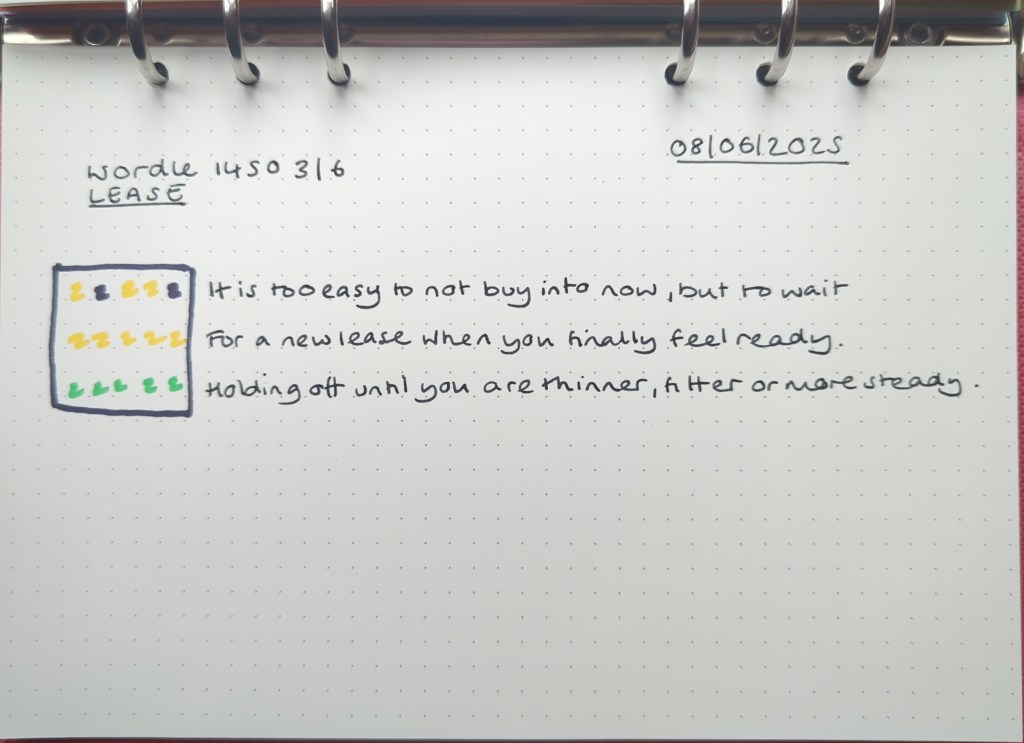 08/06/2025
Wordle 1450 3/6
LEASE
It is too easy to not buy into now, but to wait
For a new lease when you finally feel ready.
Holding off until you are thinner, fitter or more steady.